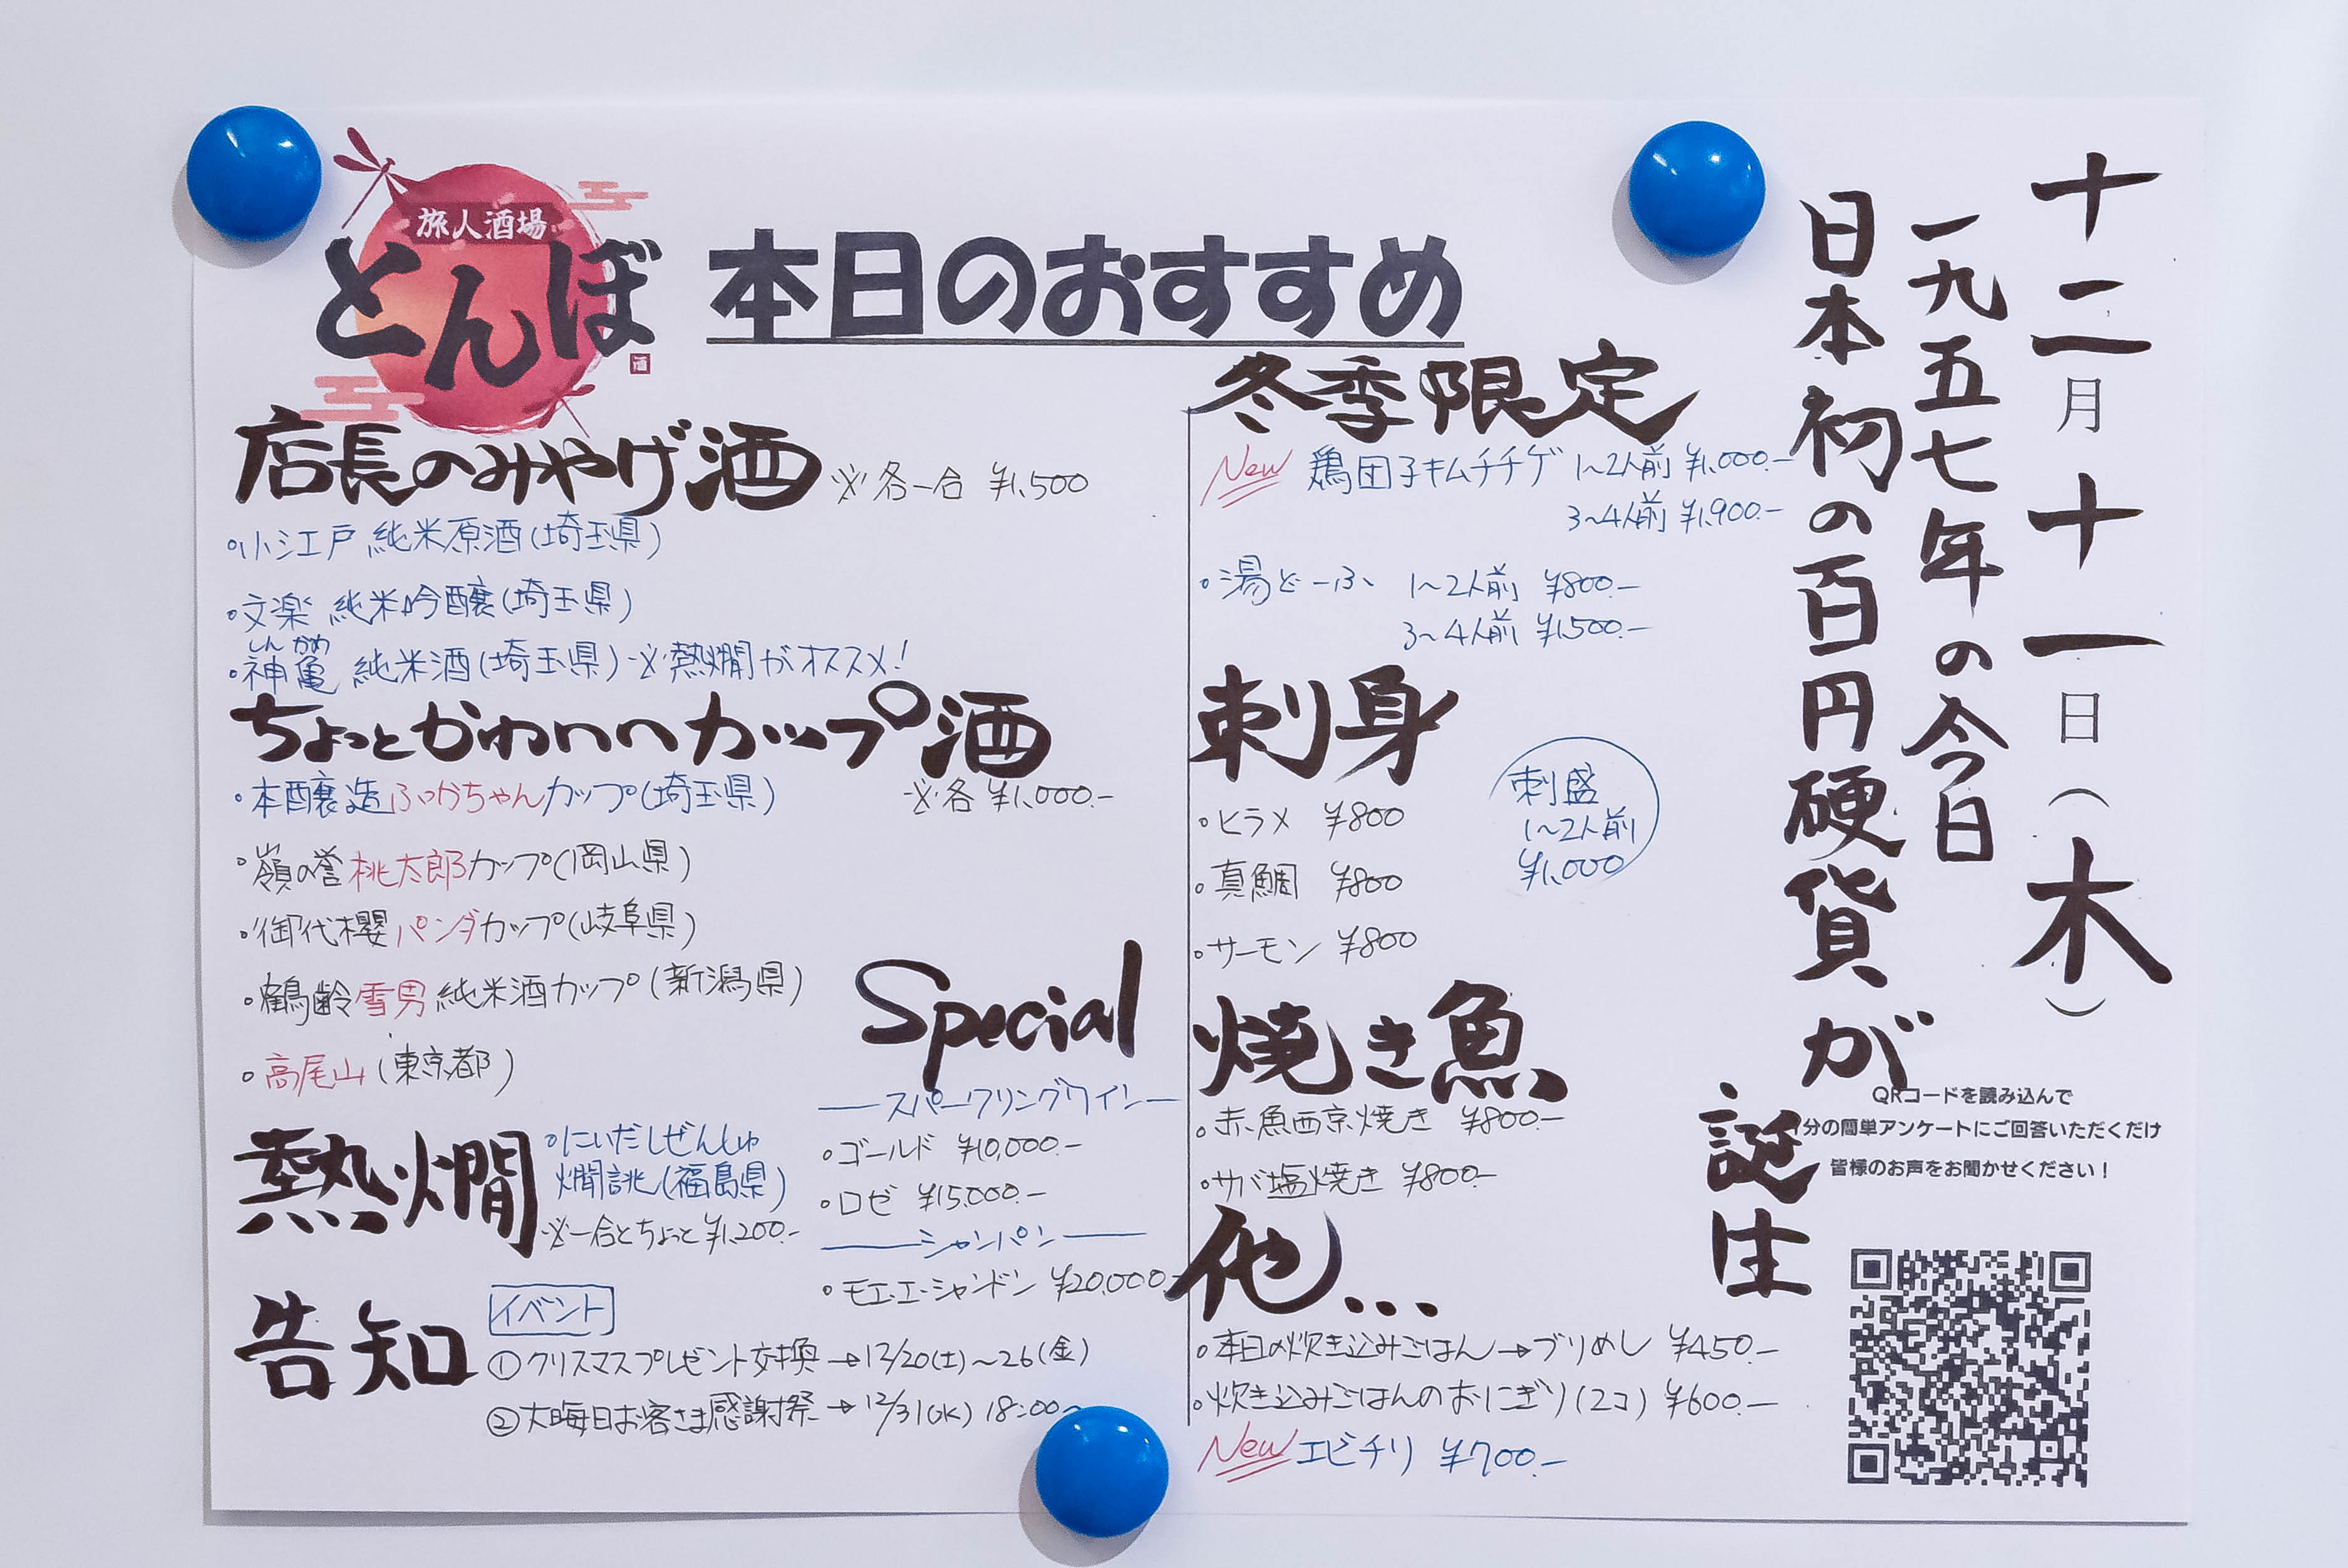 旅人酒場
とんぼ
酒
本日のおすすめ
十二月十一日(木)
一九五七年の今日
日本初の百円硬貨が
誕生
店長のみやげ酒 ※各一合 ¥1,500
・小江戸 純米原酒(埼玉県)
・文楽 純米吟醸(埼玉県)
しんかめ
・神亀 純米酒(埼玉県)※熱燗がオススメ!
ちょっとかわいいカップ酒
※各 ¥1,000.-
・本醸造ふっかちゃんカップ(埼玉県)
・嶺の誉桃太郎カップ(岡山県)
・御代櫻パンダカップ(岐阜県)
・鶴齢雪男純米酒カップ(新潟県)
・高尾山(東京都)
熱燗
・にいだしぜんしゅ
燗誂(福島県)
※一合とちょっと ¥1,200.-
Special
スパークリングワイン
・ゴールド ¥10,000.-
・ロゼ ¥15,000.-
シャンパン
・モエ・エ・シャンドン ¥20,000.-
告知
イベント
①クリスマスプレゼント交換→12/20(土)~26(金)
②大晦日お客さま感謝祭→12/31(水)18:00~
冬季限定
New 鶏団子キムチチゲ 1~2人前 ¥1,000.-
3~4人前 ¥1,900.-
・湯どーふ 1~2人前 ¥800.-
3~4人前 ¥1,500.-
刺身
・ヒラメ ¥800
・真鯛 ¥800
・サーモン ¥800
刺盛
1~2人前
¥1,000
焼き魚
・赤魚西京焼き ¥800.-
・サバ塩焼き ¥800.-
他...
・本日の炊き込みごはん→ブリめし ¥450.-
・炊き込みごはんのおにぎり(2コ) ¥600.-
New エビチリ ¥700.-
QRコードを読み込んで
1分の簡単アンケートにご回答いただくだけ
皆様のお声をお聞かせください!